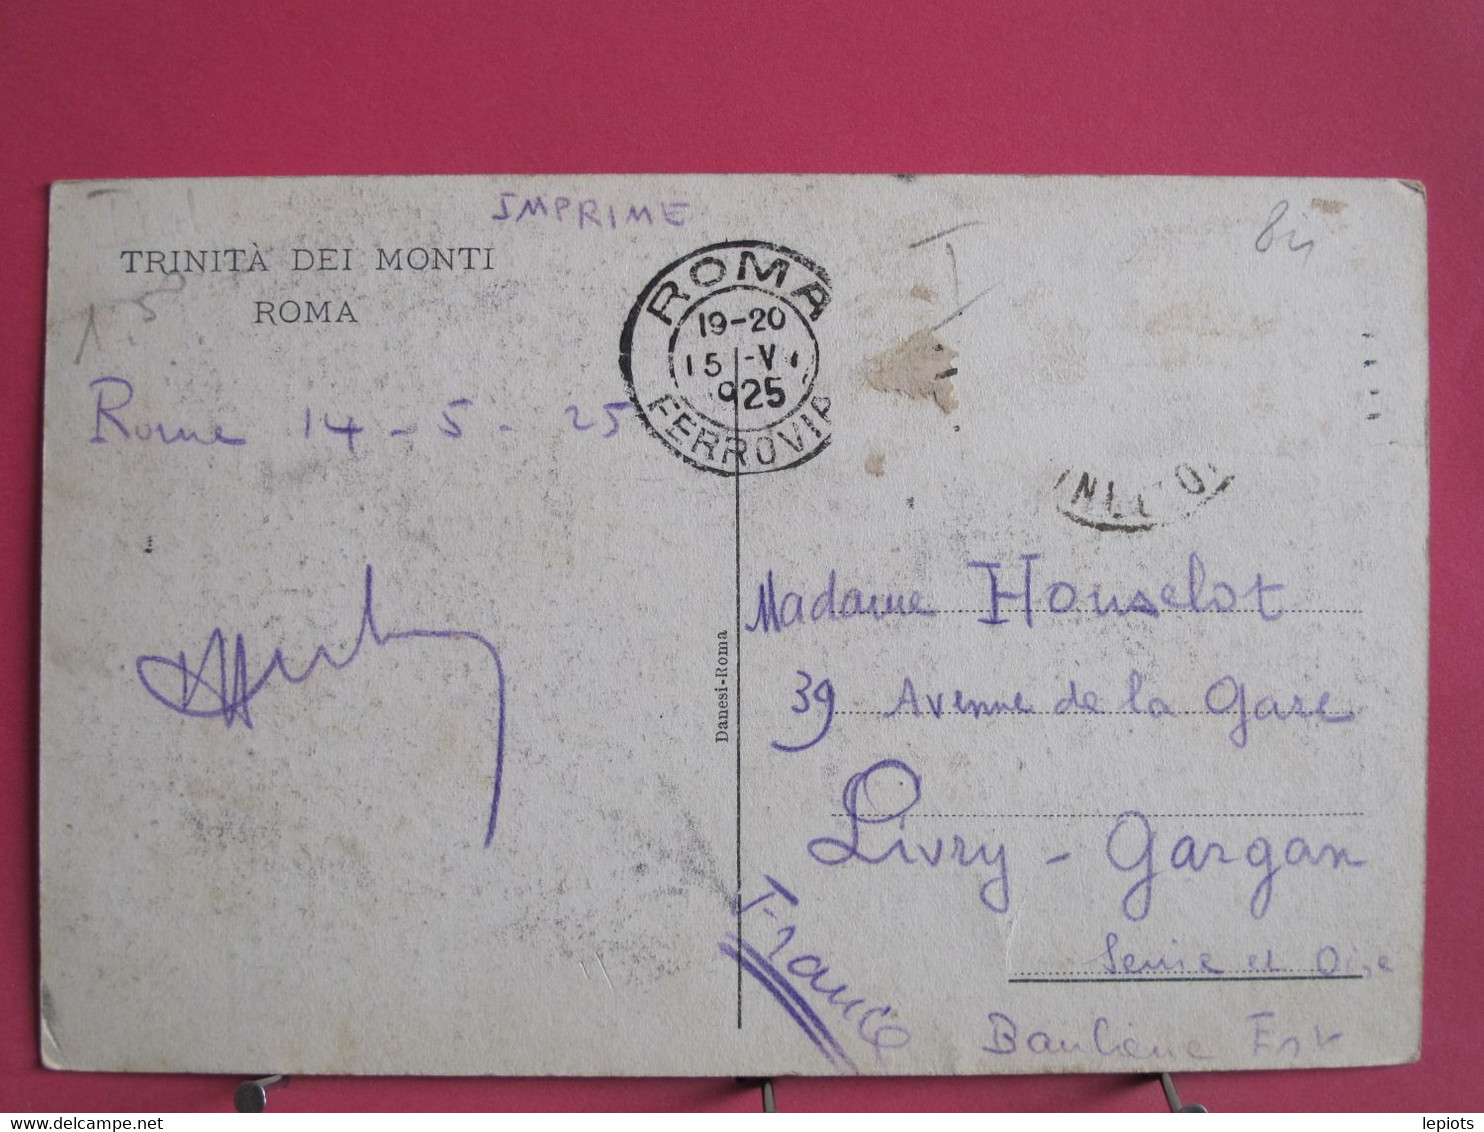 IMPRIME
TRINITÀ DEI MONTI
ROMA
1.50
Rome 14-5-25
ROMA
19-20
15-V
925
FERROVIA
I
Danesi-Roma
Madame Houselot
39 Avenue de la Gare
Livry-Gargan
Seine et Oise
Banlieue Est
France
lepiots